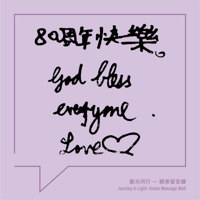 80周年快樂.
God bless
everyone.
Love♡
與光同行 — 願景留言牆
Journey in Light: Vision Message Wall